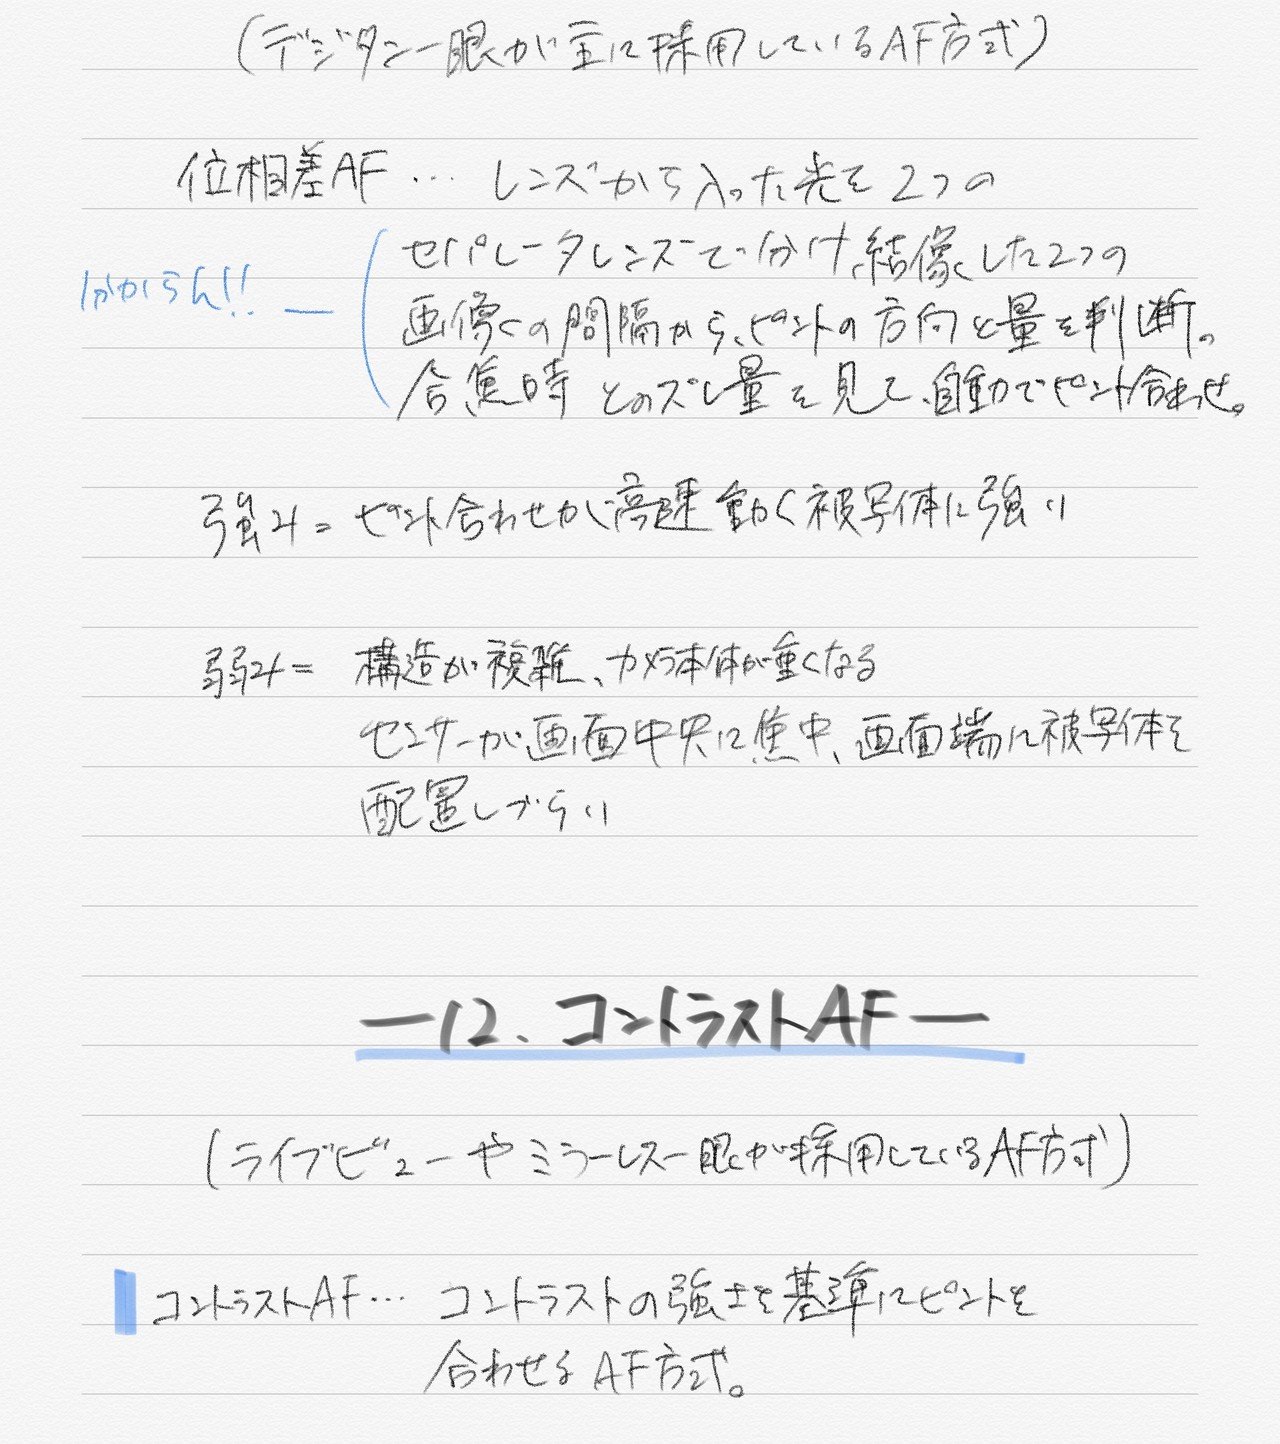 (デジタル一眼が主に採用しているAF方式)
位相差AF… レンズから入った光を2つの
セパレータレンズで分け、結像した2つの
分からん!! 画像の間隔から、ピントの方向と量を判断。
合焦時とのズレ量を見て、自動でピント合わせ。
強み=ピント合わせが高速 動く被写体に強い
弱み= 構造が複雑、カメラ本体が重くなる
センサーが画面中央に焦中、画面端に被写体を
配置しづらい
ー12.コントラストAFー
(ライブビューやミラーレス一眼が採用しているAF方式)
コントラストAF… コントラストの強さを基準にピントを
合わせるAF方式。